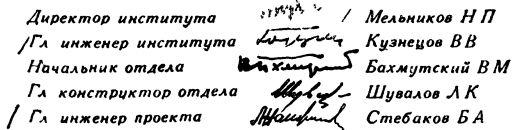 Директор института Мельников Н П
Гл инженер института Кузнецов В В
Начальник отдела Бахмутский В М
Гл конструктор отдела Шувалов Л К
Гл инженер проекта Стебаков Б А